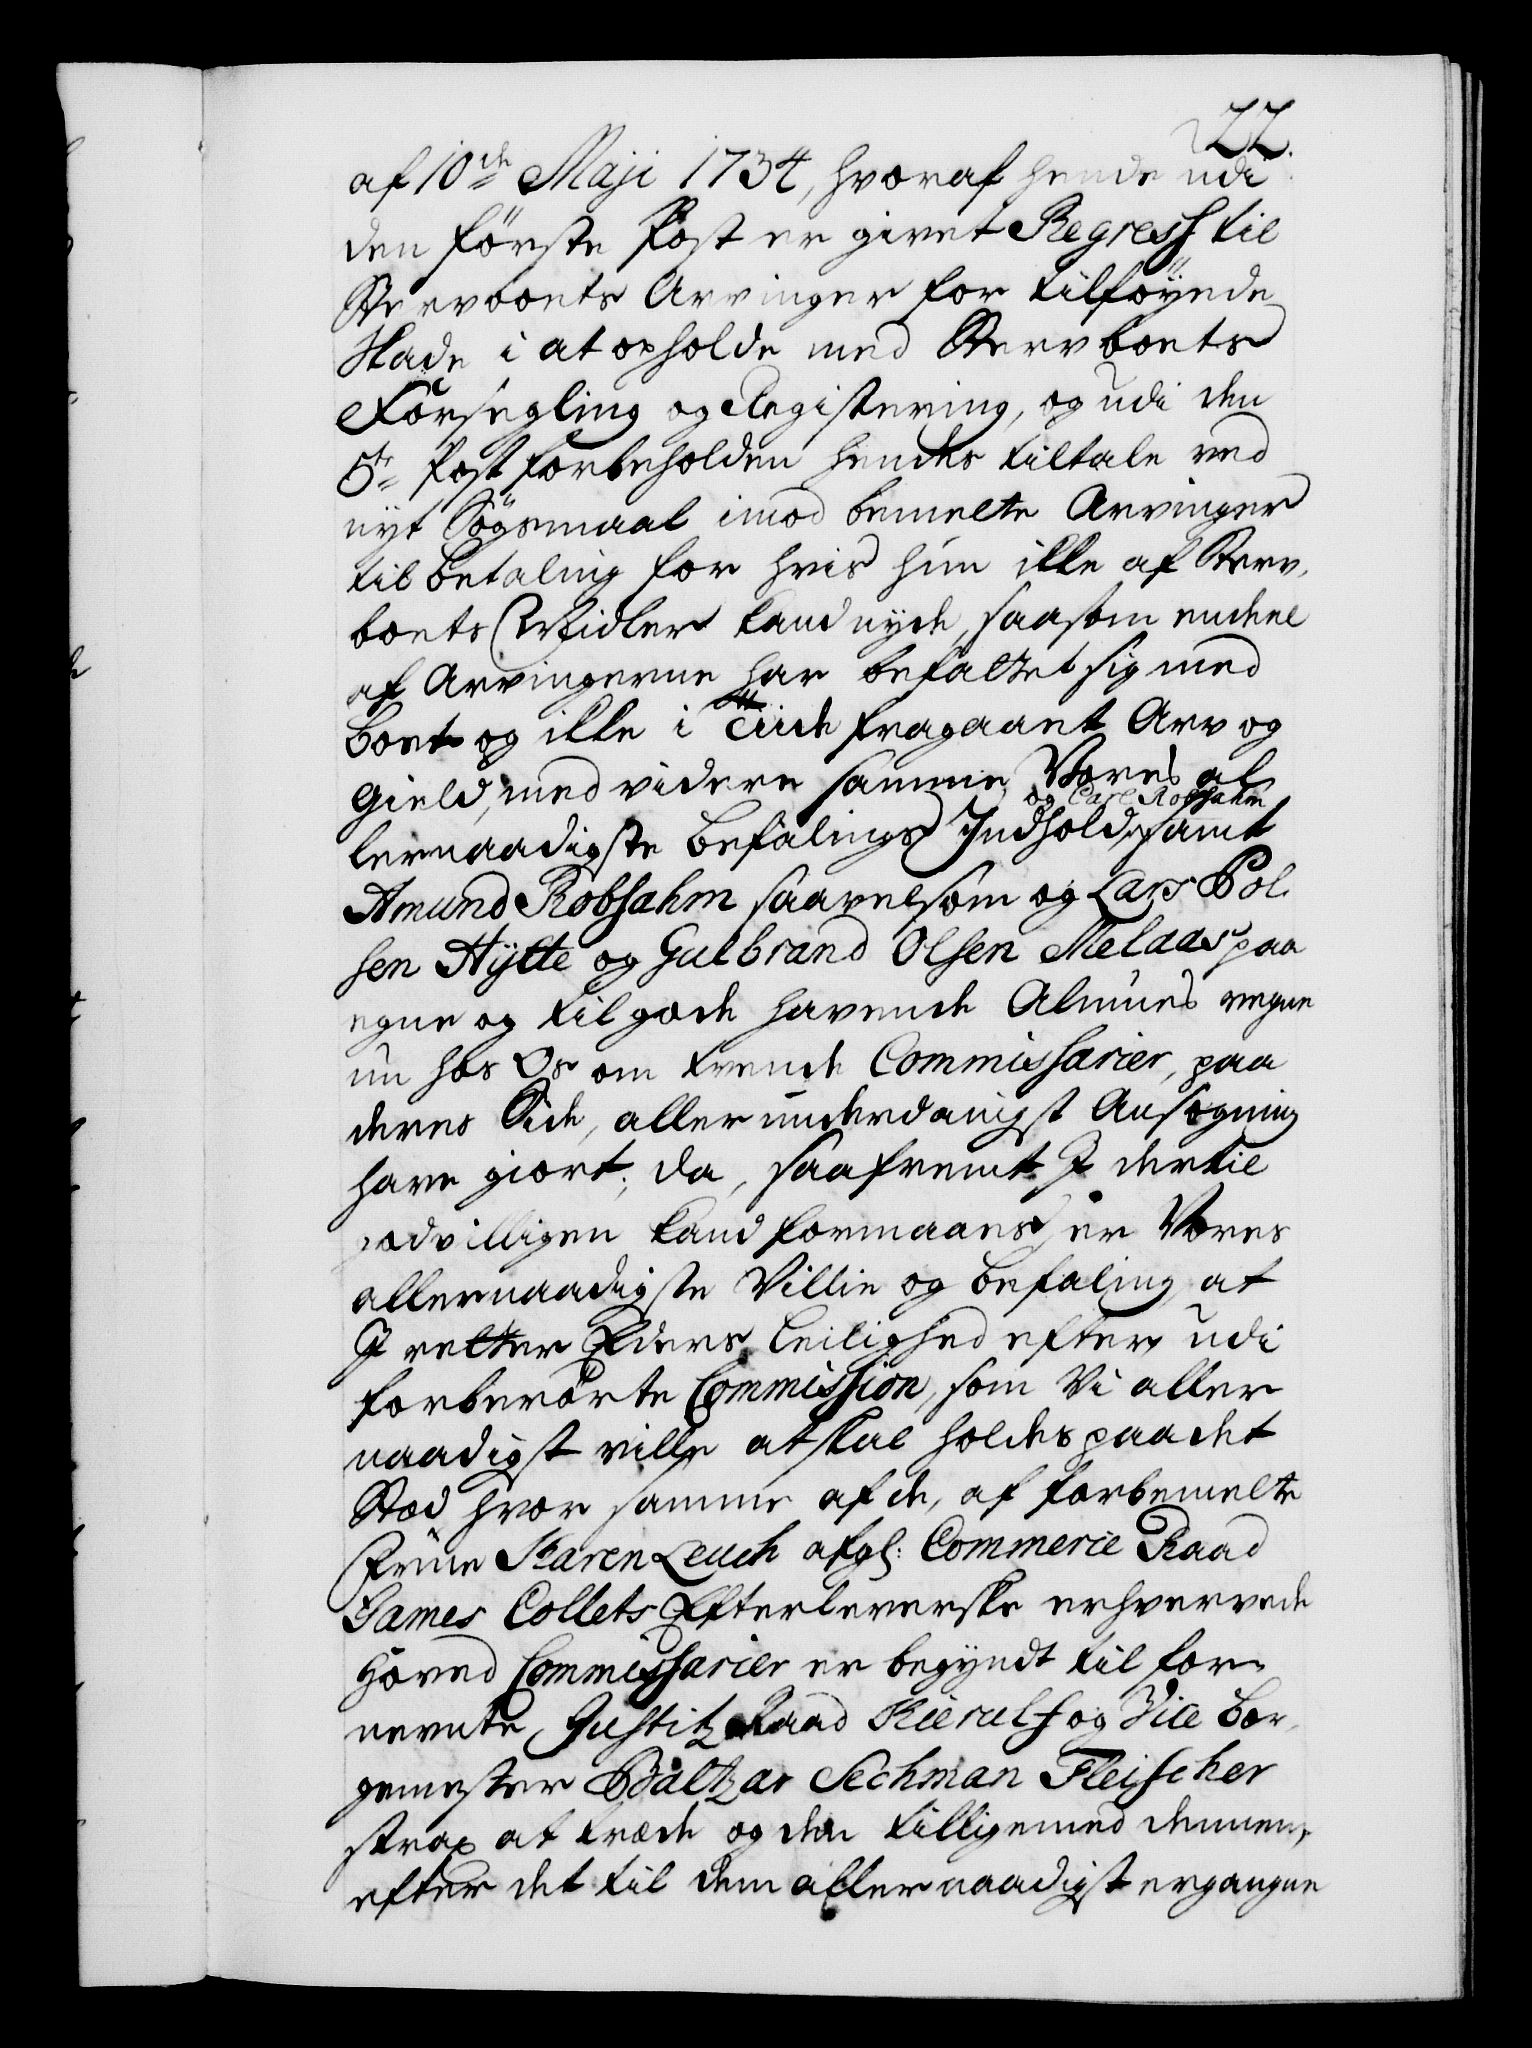 22.
af 10de Maji 1734, hvoraf hende udi
den förste Post er givet Regress til
Stervboets Arvinger for tilföyede
Skade i at opholde med Stervboets
Forsegling og Registering, og udi den
5te Post forbeholden hendes tiltale ved
nyt Sögsmaal imod bemelte Arvinger
til betaling for hvis hun ikke af Sterv-
boets Midler kand nyde, saasom endeel
af Arvingerne har befattet sig med
boet og ikke i tiide fragaaet Arv og
Gield, med videre samme Vores al-
og Carl Robsahm
lernaadigste befalings Indhold, samt
Amund Robsahm saavelsom og Lars Pol-
sen Hytte og Gulbrand Olsen Melaas paa
egne og tilgode havende Almues vegne
nu hos Os om trende Commissarier, paa
deres Side, allerunderdanigst Ansøgning
have giort; da, saafremt I dertil
godvilligen kand formaaes, er Vores
allernaadigste Villie og befaling, at
I retter Eders Leilighed efter udi
forberörte Commission, som Vi aller
naadigst ville at skal holdes paa det
Stæd hvor samme af de, af forbemelte
Frue Karen Leuch afgl: Commerce Raad
James Collets Efterleverske erhvervede
Hoved Commissarier er begyndt til for-
nevnte Justitz Raad Kierulf og Vice Bor-
gemester Baltzar Sechman Fleischer
strax at træde og den tilligemed dennem,
efter det til dem allernaadigst ergangne